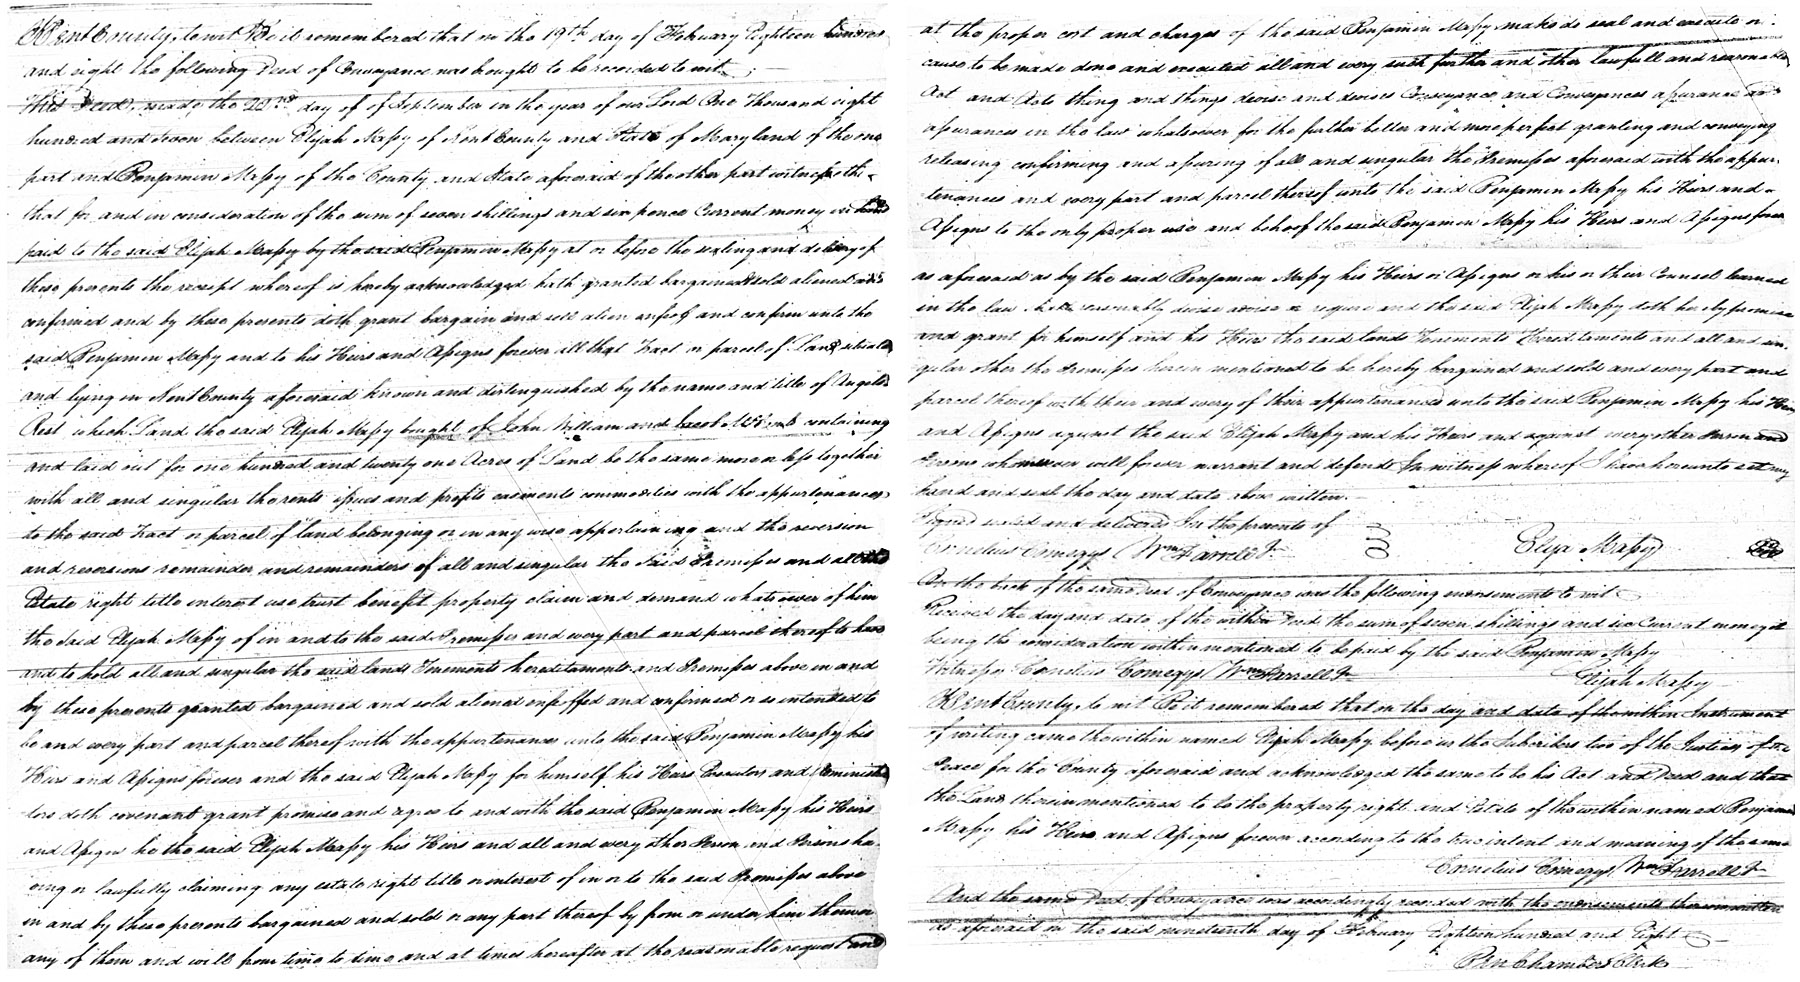 Kent County, to wit Be it remembered that on the 19th day of February Eighteen hundred
and eight the following Deed of Conveyance was brought to be recorded to wit
This Deed, made the 22nd day of of September in the year of our Lord One Thousand eight
hundred and seven between Elijah Massy of Kent County and State of Maryland of the one
part and Benjamin Massy of the County and State aforesaid of the other part witnesseth
that for and in consideration of the sum of seven shillings and six pence Current money in hand
paid to the said Elijah Massy by the said Benjamin Massy at or before the sealing and delivery of
these presents the receipt whereof is hereby acknowledged hath granted bargained sold aliened and
confirmed and by these presents doth grant bargain and sell alien enfeoff and confirm unto the
said Benjamin Massy and to his Heirs and Assigns forever all that Tract or parcel of Land situate
and lying in Kent County aforesaid known and distinguished by the name and title of Angels
Rest which Land the said Elijah Massy bought of John William and containing
and laid out for one hundred and twenty one Acres of Land be the same more or less together
with all and singular the rents issues and profits easments commodities with the appurtenances
to the said Tract or parcel of land belonging or in any wise appertaining and the reversion
and reversions remainder and remainders of all and singular the said Premisses and all the
Estate right title interest use trust benefit property claim and demand whatsoever of him
the said Elijah Massy of in and to the said Premisses and every part and parcel thereof to have
and to hold all and singular the said lands Tenements hereditaments and Premisses above in and
by these presents granted bargained and sold aliened enfeffed and confirmed or so intended to
be and every part and parcel thereof with the appurtenances unto the said Benjamin Massy his
Heirs and Assigns forever and the said Elijah Massy for himself his Heirs Executors and Administra
tors doth covenant grant promise and agree to and with the said Benjamin Massy his Heirs
and Assigns he the said Elijah Massy his Heirs and all and every other Person and Persons ha-
ving or lawfully claiming any estate right title or interest of in or to the said Premisses above
in and by these presents bargained and sold or any part thereof by from or under him them or
any of them and will from time to time and at times hereafter at the reasonable request and
at the proper cost and charges of the said Benjamin Massy make do seal and execute or
cause to be made done and executed all and every such further and other lawfull and reasonable
Act and Acts thing and things devise and devises Conveyance and Conveyances assurance and
assurances in the law whatsoever for the further better and more perfect granting and conveying
releasing confirming and assuring of all and singular the Premisses aforesaid with the appur-
tenances and every part and parcel thereof unto the said Benjamin Massy his Heirs and
Assigns to the only proper use and behoof the said Benjamin Massy his Heirs and Assigns forever
as aforesaid as by the said Benjamin Massy his Heirs or Assigns or his or their Counsel learned
in the law reasonably devise advise or require and the said Elijah Massy doth hereby promise
and grant for himself and his Heirs the said lands Tenements Hereditaments and all and sin-
gular other the Premisses herein mentioned to be hereby bargained and sold and every part and
parcel thereof with their and every of their appurtenances unto the said Benjamin Massy his Heirs
and Assigns against the said Elijah Massy and his Heirs and against every other Person and
Persons whomsoever will forever warrant and defend In witness whereof I have hereunto set my
hand and seal the day and date above written.
Signed sealed and delivered In the presents of
Cornelius Comegys Wm Farrell Jr Elija Massy
On the back of the same Deed of Conveyance was the following endorsements to wit
Received the day and date of the within Deed the sum of seven shillings and six Current money it
being the consideration within mentioned to be paid by the said Benjamin Massy
Witness Cornelius Comegys Wm Farrell Jr Elijah Massy
Kent County, to wit Be it remembered that on the day and date of the within Instrument
of writing came the within named Elijah Massy before us the Subscribers two of the Justices of the
Peace for the County aforesaid and acknowledged the same to be his Act and Deed and that
the Land therein mentioned to be the property right and Estate of the within named Benjamin
Massy his Heirs and Assigns forever according to the true intent and meaning of the same
Cornelius Comegys Wm Farrell Jr
And the same Deed of Conveyance was accordingly recorded with the endorsements thereon written
as aforesaid on the said nineteenth day of February Eighteen hundred and Eight
Ben Chambers Clerk